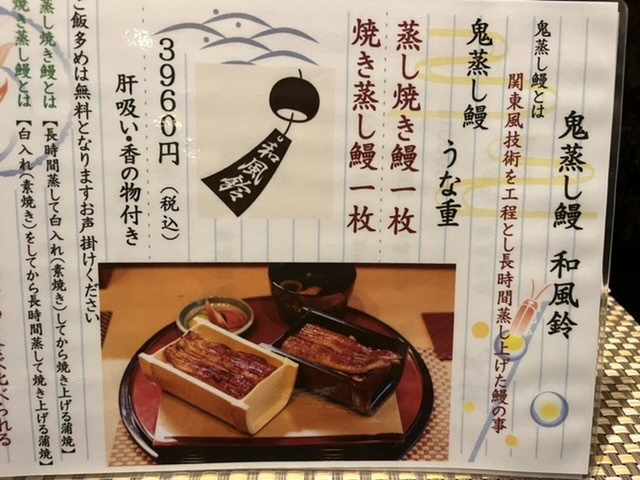 鬼蒸し鰻 和風鈴
鬼蒸し鰻とは
関東風技術を工程とし長時間蒸し上げた鰻の事
鬼蒸し鰻 うな重
蒸し焼き鰻一枚
焼き蒸し鰻一枚
和風鈴
3960円(税込)
肝吸い・香の物付き
ご飯多めは無料となりますお声掛けください
蒸し焼き鰻とは【長時間蒸して白入れ(素焼き)してから焼き上げる蒲焼】
焼き蒸し鰻とは【白入れ(素焼き)をしてから長時間蒸して焼き上げる蒲焼】
食べ比べられる